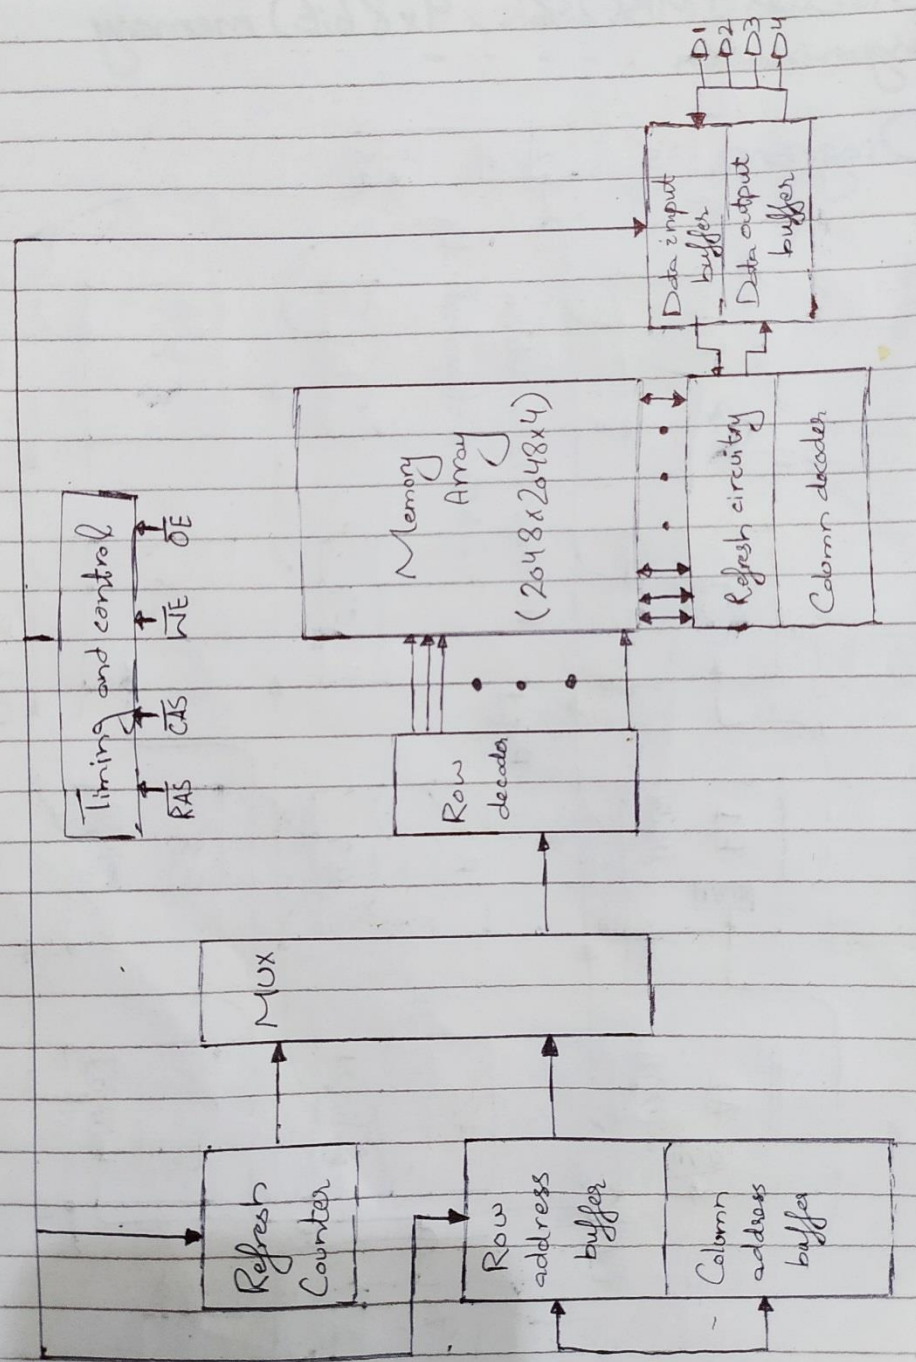 Timing and control
RAS
CAS
WE
OE
Refresh
Counter
MUX
Row
address
buffer
Column
address
buffer
Row
decoder
Memory
Array
(2048x2048x4)
Refresh circuitry
Column decoder
Data input
buffer
Data output
buffer
D1
D2
D3
D4